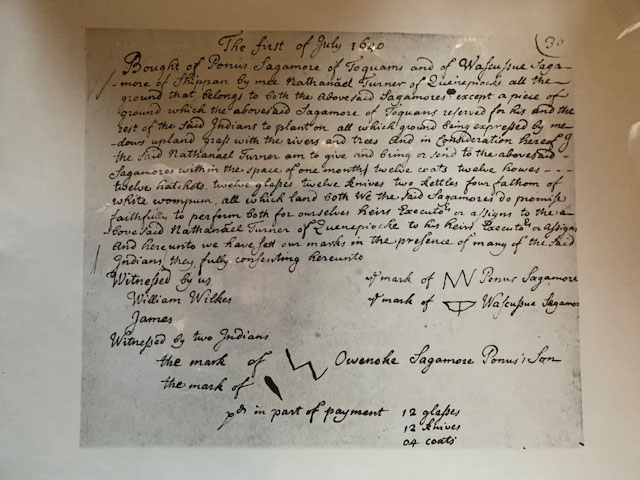 The first of July 1640
(30
Bought of Ponus Sagamore of Toquams and of Wascussue Saga-
more of Shippan by mee Nathanäel Turner of Quenepiocke all the
ground that belongs to both the abovesaid Sagamores except a piece of
ground which the abovesaid Sagamore of Toquans reserved for his and the
rest of the said Indians to plant on all which ground being expressed by me
dows upland grass with the rivers and trees And in Consideration hereof
the said Nathanael Turner am to give and bring or send to the abovesaid
Sagamores within the space of one month, twelve coats twelve howes
twelve hatchets, twelve glasses twelve knives two kettles four fathom of
white wompum, all which land both We the said Sagamores do promise
faithfully to perform both for ourselves heirs Executrs or assigns to the a-
bovesaid Nathanäel Turner of Quenepiocke to his heirs Executrs or assigns
And hereunto we have sett our marks in the presence of many of the said
Indians, they fully consenting hereunto
Witnessed by us
William Wilkes
James
ye mark of Ponus Sagamore
ye mark of Wascussue Sagamor
Witnessed by two Indians
the mark of Owenoke Sagamore Ponus' Son
the mark of
pd in part of payment 12 glasses
12 knives
04 coats